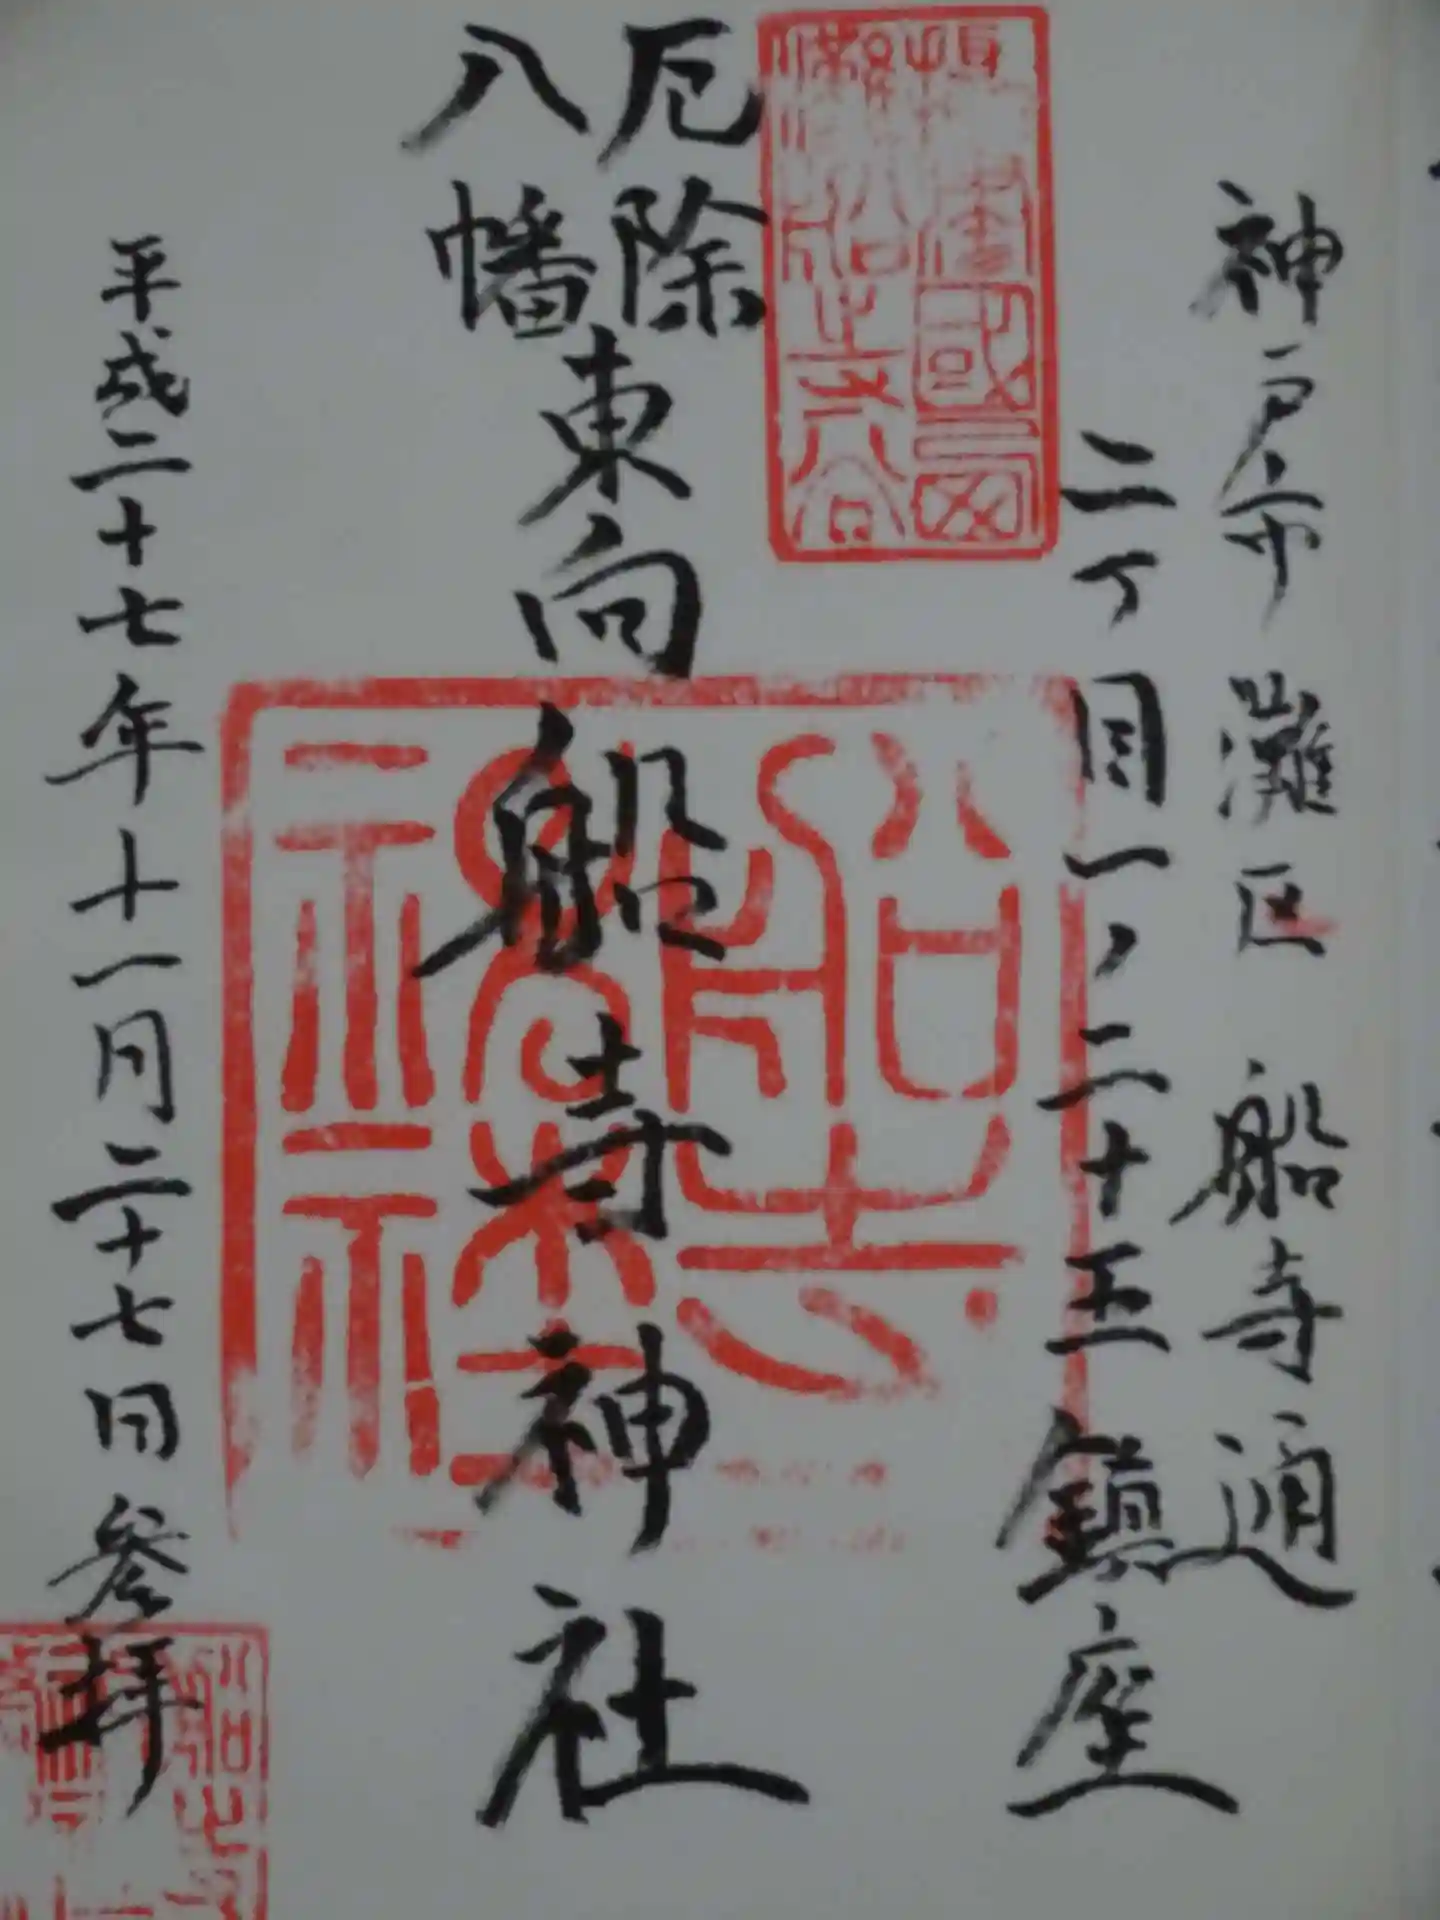 神戸市灘区船寺通
二丁目一ノ二十五鎮座
厄除
八幡
東向船寺神社
平成二十七年十一月二十七日参拝